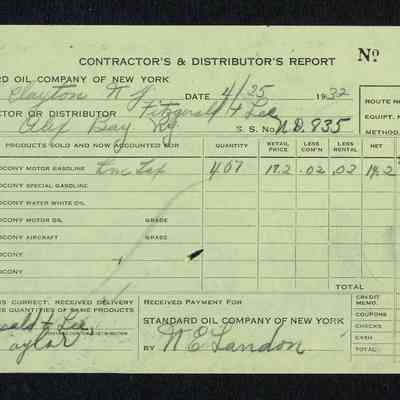 CONTRACTOR'S & DISTRIBUTOR'S REPORT Nº
RD OIL COMPANY OF NEW YORK
Clayton N Y DATE 4/25 1932
ROUTE NO
CTOR OR DISTRIBUTOR Fitzgerald & Lee
EQUIPT. N
Alex Bay Ny S. S. No. N.D. 835
METHOD
PRODUCTS SOLD AND NOW ACCOUNTED FOR QUANTITY RETAIL PRICE LESS COM'N LESS RENTAL NET
OCONY MOTOR GASOLINE 407 17.2 .02 .02
OCONY SPECIAL GASOLINE
OCONY WATER WHITE OIL
OCONY MOTOR OIL GRADE
OCONY AIRCRAFT GRADE
OCONY
OCONY
TOTAL
IS CORRECT. RECEIVED DELIVERY
E QUANTITIES OF SAME PRODUCTS
RECEIVED PAYMENT FOR
CREDIT MEMO.
STANDARD OIL COMPANY OF NEW YORK
COUPONS
erald & Lee
CHECKS
aylor
BY W E Landon
CASH
TOTAL